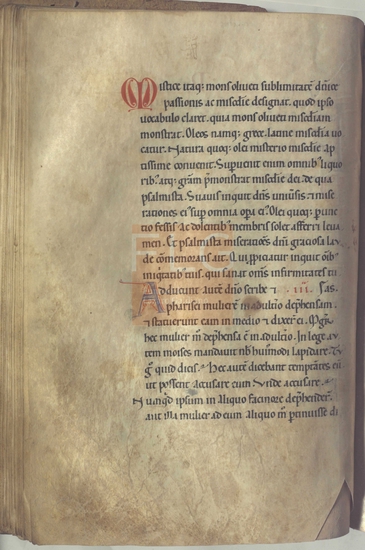 Mistice itaq; mons oliveti sublimitatē dn̄ice
passionis ac misc̄die designat. quod ipso
vocabulo claret. quia mons oliveti misc̄diam
monstrat. Oleos namq; grece. latine misc̄dia vo
catur. Natura quoq; olei misterio misc̄die ap
tissime convenit. Supervenit enim omnib; liquo
rib; atq; gr̄am p̄monstrat misc̄die dei. de qua
psalmista. Suavis inquit dn̄s univ̄sis ⁊ mise
rationes ei; sup omnia opa ei; Olei quoq; ꝑunc
tio fessis ac dolentib; membris solet afferri leva
men. Et psalmista miserationes dn̄i graciosa lau
de com̄emorans ait. Qui ꝓpiciatur inquit om̄ib;
iniq̄tatib; tuis. qui sanat om̄s infirmitates tu
Adducunt autē dn̄o scribe ⁊ as.
pharisei mulierē in adultio dephensam.
⁊ statuerunt eam in medio ⁊ dixer̄ ei. Mgr̄
hec mulier m̄ dephensa ē in adultio. In lege au
tem moises mandavit nb̄ hui;modi lapidare. Tu
g̊ quid dicis. Hec autē dicebant temptātes eū
ut possent accusare eum Vide accusare
Nunq̄d ipsum in aliquo facinore dephender̄.
aut illa mulier ad eum aliquo m̄ ꝑtinuisse di